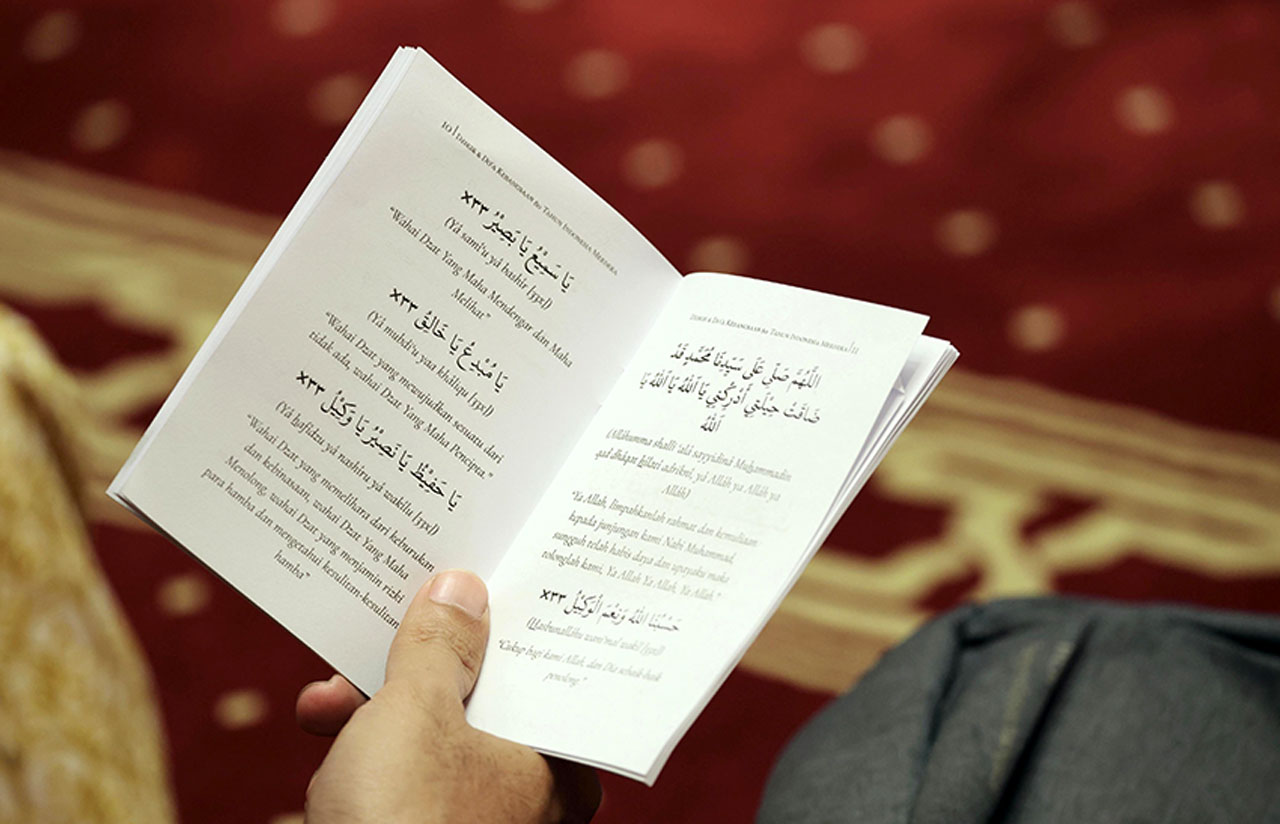 10 | Dzikir & Do'a Kebangsaan 80 Tahun Indonesia Merdeka
يَا سَمِيْعُ يَا بَصِيْرُ ×٣٣
(Yâ samî'u yâ bashîr [33x])
"Wahai Dzat Yang Maha Mendengar dan Maha
Melihat"
يَا مُبْدِعُ يَا خَالِقُ ×٣٣
(Yâ mubdi'u yaa khâliqu [33x])
"Wahai Dzat yang mewujudkan sesuatu dari
tidak ada, wahai Dzat Yang Maha Pencipta."
يَا حَفِيْظُ يَا نَصِيْرُ يَا وَكِيْلُ ×٣٣
(Yâ hafidzu yâ nashiru yâ wakilu [33x])
"Wahai Dzat yang memelihara dari keburukan
dan kebinasaan, wahai Dzat Yang Maha
Menolong, wahai Dzat yang menjamin rizki
para hamba dan mengetahui kesulitan-kesulitan
hamba"
Dzikir & Do'a Kebangsaan 80 Tahun Indonesia Merdeka | 11
اللّٰهُمَّ صَلِّ عَلَى سَيِّدِنَا مُحَمَّدٍ قَدْ
ضَاقَتْ حِيْلَتِي أَدْرِكْنِي يَا اَللّٰهُ يَا اَللّٰهُ يَا
اَللّٰهُ
(Allâhumma shalli 'alâ sayyidinâ Muhammadin
qad dhâqat hîlatî adriknî, yâ Allâh ya Allâh ya
Allâh)
"Ya Allah, limpahkanlah rahmat dan kemuliaan
kepada junjungan kami Nabi Muhammad,
sungguh telah habis daya dan upayaku maka
tolonglah kami, Ya Allah Ya Allah, Ya Allah."
حَسْبُنَا اللّٰهُ وَنِعْمَ الْوَكِيْلُ ×٣٣
(Hasbunallâhu wani'mal wakîl [33x])
"Cukup bagi kami Allah, dan Dia sebaik-baik
penolong."